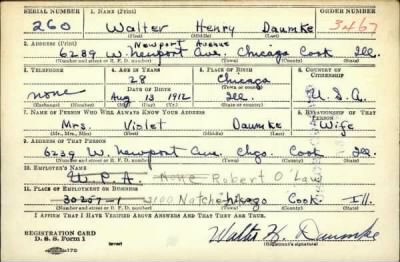 SERIAL NUMBER 1. NAME (Print) ORDER NUMBER
260 Walter Henry Daumke 3467
(First) (Middle) (Last)
2. ADDRESS (Print) Newport Avenue
6239 W. Newport Ave. Chicago Cook Ill.
(Number and street or R. F. D. number) (Town) (County) (State)
3. TELEPHONE 4. AGE IN YEARS 5. PLACE OF BIRTH 6. COUNTRY OF CITIZENSHIP
28 Chicago
none DATE OF BIRTH (Town or county)
Aug 13 1912 Ill. U.S.A.
(Exchange) (Number) (Mo.) (Day) (Yr.) (State or country)
7. NAME OF PERSON WHO WILL ALWAYS KNOW YOUR ADDRESS 8. RELATIONSHIP OF THAT PERSON
Mrs. Violet Daumke Wife
(Mr., Mrs., Miss) (First) (Middle) (Last)
9. ADDRESS OF THAT PERSON
6239 W. Newport Ave. Chgo. Cook Ill.
(Number and street or R. F. D. number) (Town) (County) (State)
10. EMPLOYER'S NAME
W.P.A. Robert O'Law
11. PLACE OF EMPLOYMENT OR BUSINESS
30257-1 3100 Chicago Cook Ill.
(Number and street or R. F. D. number) (Town) (County) (State)
I AFFIRM THAT I HAVE VERIFIED ABOVE ANSWERS AND THAT THEY ARE TRUE.
REGISTRATION CARD
D. S. S. Form 1 (over) Walter H. Daumke
(Registrant's signature)